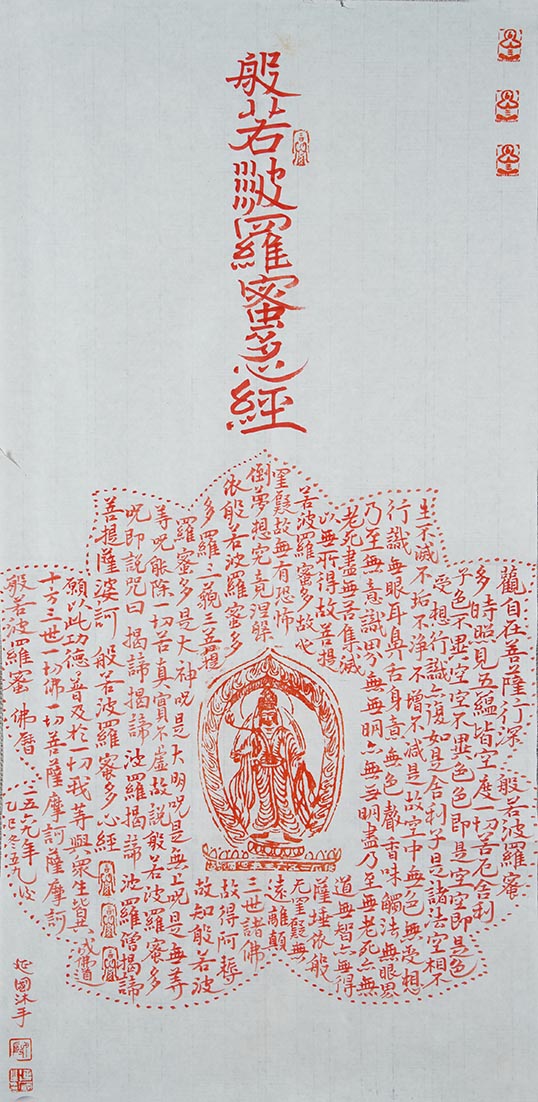 般若波羅蜜多心經
觀自在菩薩行深般若波羅蜜
多時照見五蘊皆空度一切苦厄舍利
子色不異空空不異色色即是空空即是色
受想行識亦復如是舍利子是諸法空相不
生不滅不垢不淨不增不減是故空中無色無受想
行識無眼耳鼻舌身意無色聲香味觸法無眼界
乃至無意識界無無明亦無無明盡乃至無老死亦無
老死盡無苦集滅
道無智亦無得
以無所得故菩提
薩埵依般
若波羅蜜多故心
无罣礙無
罣礙故無有恐怖
遠離顛
倒夢想究竟涅槃
三世諸佛
依般若波羅蜜多
故得阿耨
多羅三藐三菩提
故知般若波
羅蜜多是大神咒是大明咒是無上咒是無等
等咒能除一切苦真實不虛故說般若波羅蜜多
咒即說咒曰 揭諦揭諦 波羅揭諦 波羅僧揭諦
菩提薩婆訶 般若波羅蜜多心經
願以此功德普及於一切我等與眾生皆共成佛道
十方三世一切佛一切菩薩摩訶薩摩訶
般若波羅蜜 佛曆二五六九年
乙巳冬五九
延國沐手